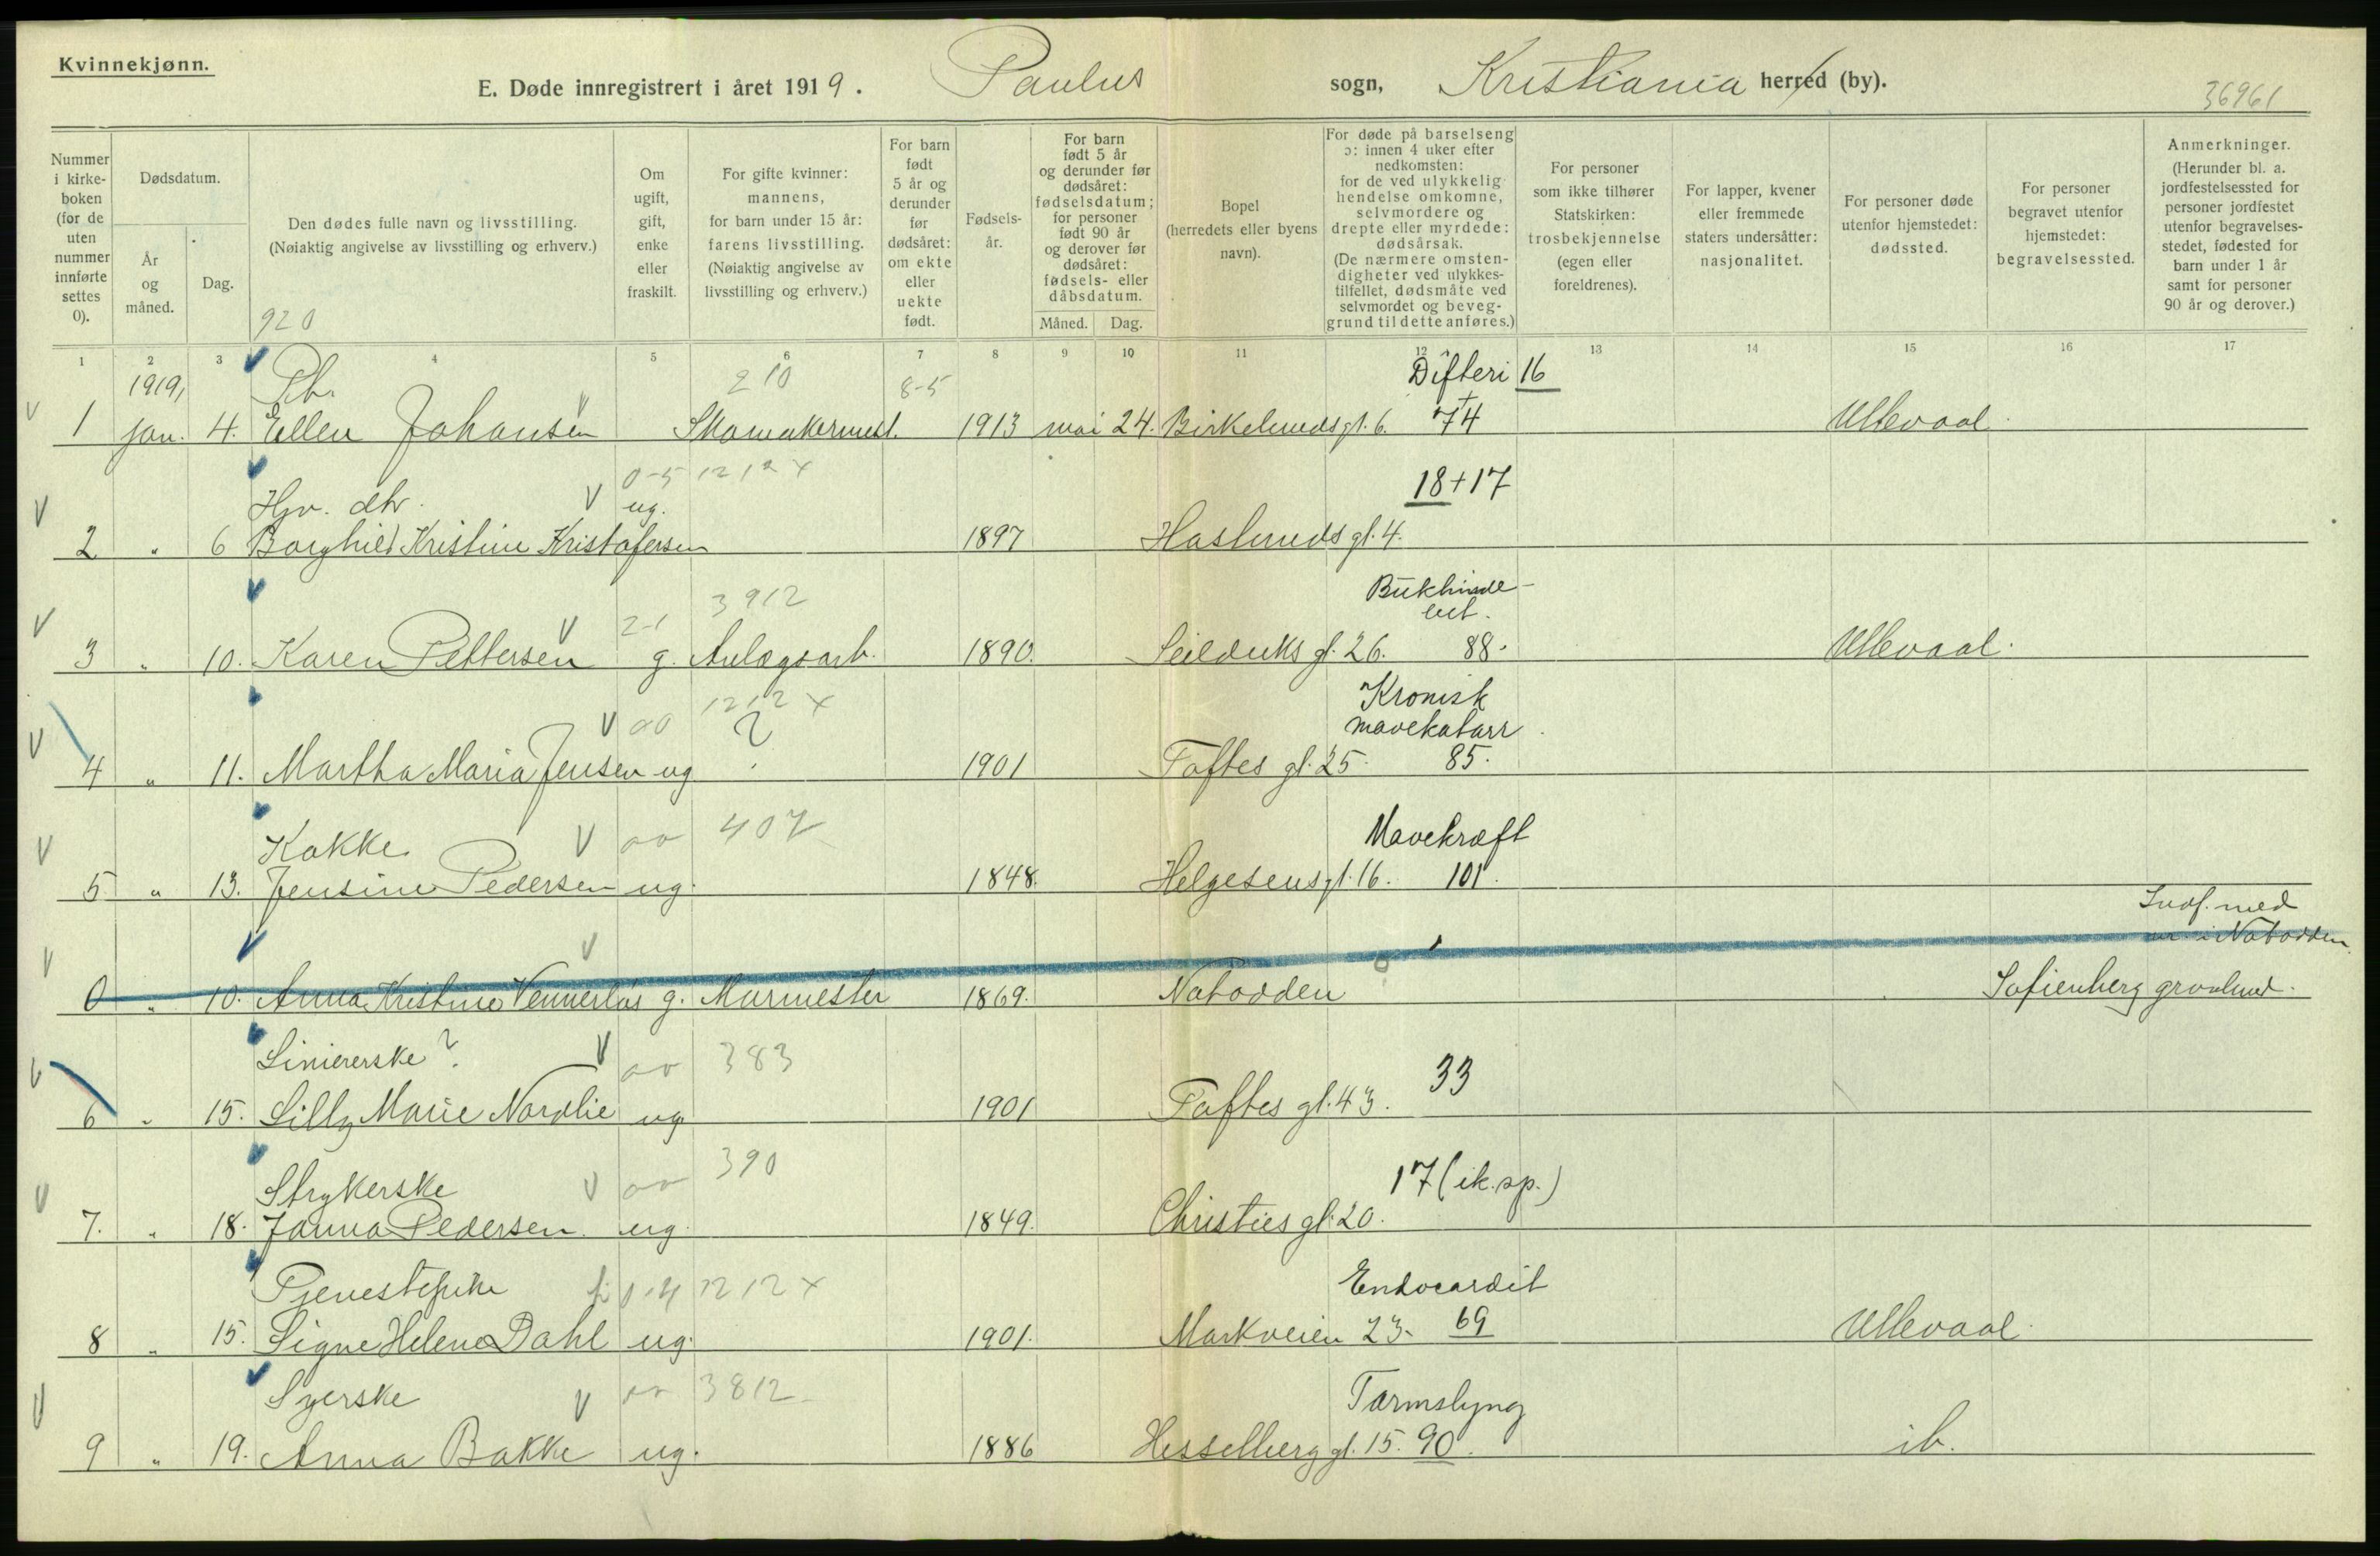 Kvinnekjønn.
E. Døde innregistrert i året 1919. Paulus sogn, Kristiania herred (by).
36961
Nummer i kirke-boken (for de uten nummer innførte settes 0).
Dødsdatum.
År og måned.
Dag.
Den dødes fulle navn og livsstilling.
(Nøiaktig angivelse av livsstilling og erhverv.)
920
Om ugift, gift, enke eller fraskilt.
For gifte kvinner: mannens, for barn under 15 år: farens livsstilling.
(Nøiaktig angivelse av livsstilling og erhverv.)
For barn født 5 år og derunder før dødsåret: om ekte eller uekte født.
Fødsels-år.
For barn født 5 år og derunder før dødsåret: fødselsdatum; for personer født 90 år og derover før dødsåret: fødsels- eller dåbsdatum.
Måned. Dag.
Bopel (herredets eller byens navn).
For døde på barselseng ɔ: innen 4 uker efter nedkomsten: for de ved ulykkelig hendelse omkomne, selvmordere og drepte eller myrdede: dødsårsak.
(De nærmere omsten-digheter ved ulykkes-tilfellet, dødsmåte ved selvmordet og beveg-grund til dette anføres.)
For personer som ikke tilhører Statskirken: trosbekjennelse (egen eller foreldrenes).
For lapper, kvener eller fremmede staters undersåtter: nasjonalitet.
For personer døde utenfor hjemstedet: dødssted.
For personer begravet utenfor hjemstedet: begravelsessted.
Anmerkninger.
(Herunder bl. a. jordfestelsessted for personer jordfestet utenfor begravelses-stedet, fødested for barn under 1 år samt for personer 90 år og derover.)
1 2 3 4 5 6 7 8 9 10 11 12 13 14 15 16 17
1919, Pb. 210 8-5 Difteri 16
1 jan. 4. Ellen Johansen Skomakermest. 1913 mai 24. Birkelundsgt. 6. 74 Ullevaal.
0-5 1212 x
Hjv. dtr. ug. 18+17
2 " 6 Borghild Kristine Kristofersen 1897 Haslundsgt. 4.
2-1 3912 Bukhinde-
bet.
3 " 10. Karen Pettersen g. Anlægsarb. 1890. Seilduksgt. 26. 88. Ullevaal.
00 1212 x Kronisk
? mavekatarr
4 " 11. Martha Maria Jensen ug 1901 Toftes gt. 25. 85.
Kokke 00 407 Mavekræft
5 " 13. Jensine Pedersen ug. 1848. Helgesensgt. 16. 101.
Indf. med
nr. i Notodden
0 " 10. Anna Kristine Vennerlas g. Murmester 1869. Notodden Sofienberg gravlund.
Liniererske? 00 383 33
6 " 15. Lilly Marie Nordlie ug. 1901 Toftes gt. 43.
Strykerske 00 390 17 (ik. sp.)
7. " 18. Janna Pedersen. ug. 1849. Christies gt. 20.
Tjenestepike 0-4 1212 x Endocardit
8 " 15. Signe Helene Dahl ug. 1901. Markveien 23. 69 Ullevaal.
Syerske 00 3812 Tarmslyng
9 " 19. Anna Bakke ug. 1886 Hesselberg gt. 15. 90. ib.